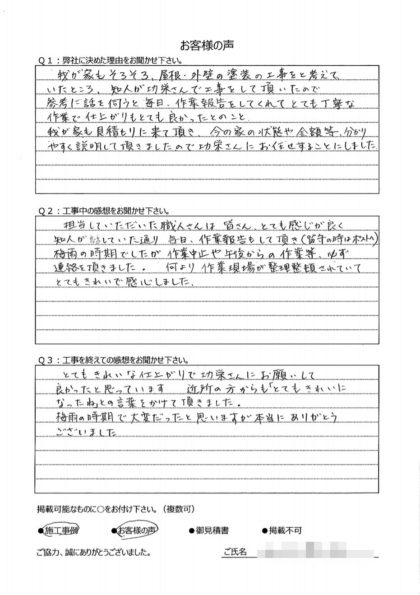 お客様の声
Q1：弊社に決めた理由をお聞かせ下さい。
我が家もそろそろ、屋根・外壁の塗装の工事をと考えて
いたところ、知人が功栄さんで工事をして頂いたので
参考に話を伺うと毎日、作業報告をしてくれてとても丁寧な
作業で仕上がりもとても良かったとのこと
我が家も見積もりに来て頂き、今の家の状態や金額等、分かり
やすく説明して頂きましたので功栄さんにお任せすることにしました
Q2：工事中の感想をお聞かせ下さい。
担当していただいた職人さんは皆さん、とても感じが良く
知人が話していた通り毎日、作業報告もして頂き(留守の時はポストへ)
梅雨の時期でしたが作業中止や午後からの作業等、必ず
連絡を頂きました。何より作業現場が整理整頓されていて
とてもきれいで感心しました。
Q3：工事を終えての感想をお聞かせ下さい。
とてもきれいな仕上がりで功栄さんにお願いして
良かったと思っています 近所の方からも「とてもきれいに
なったね」との言葉をかけて頂きました。
梅雨の時期で大変だったと思いますが本当にありがとう
ございました
掲載可能なものに○をお付け下さい。（複数可）
●施工事例 ●お客様の声 ●御見積書 ●掲載不可
ご協力、誠にありがとうございました。 ご氏名